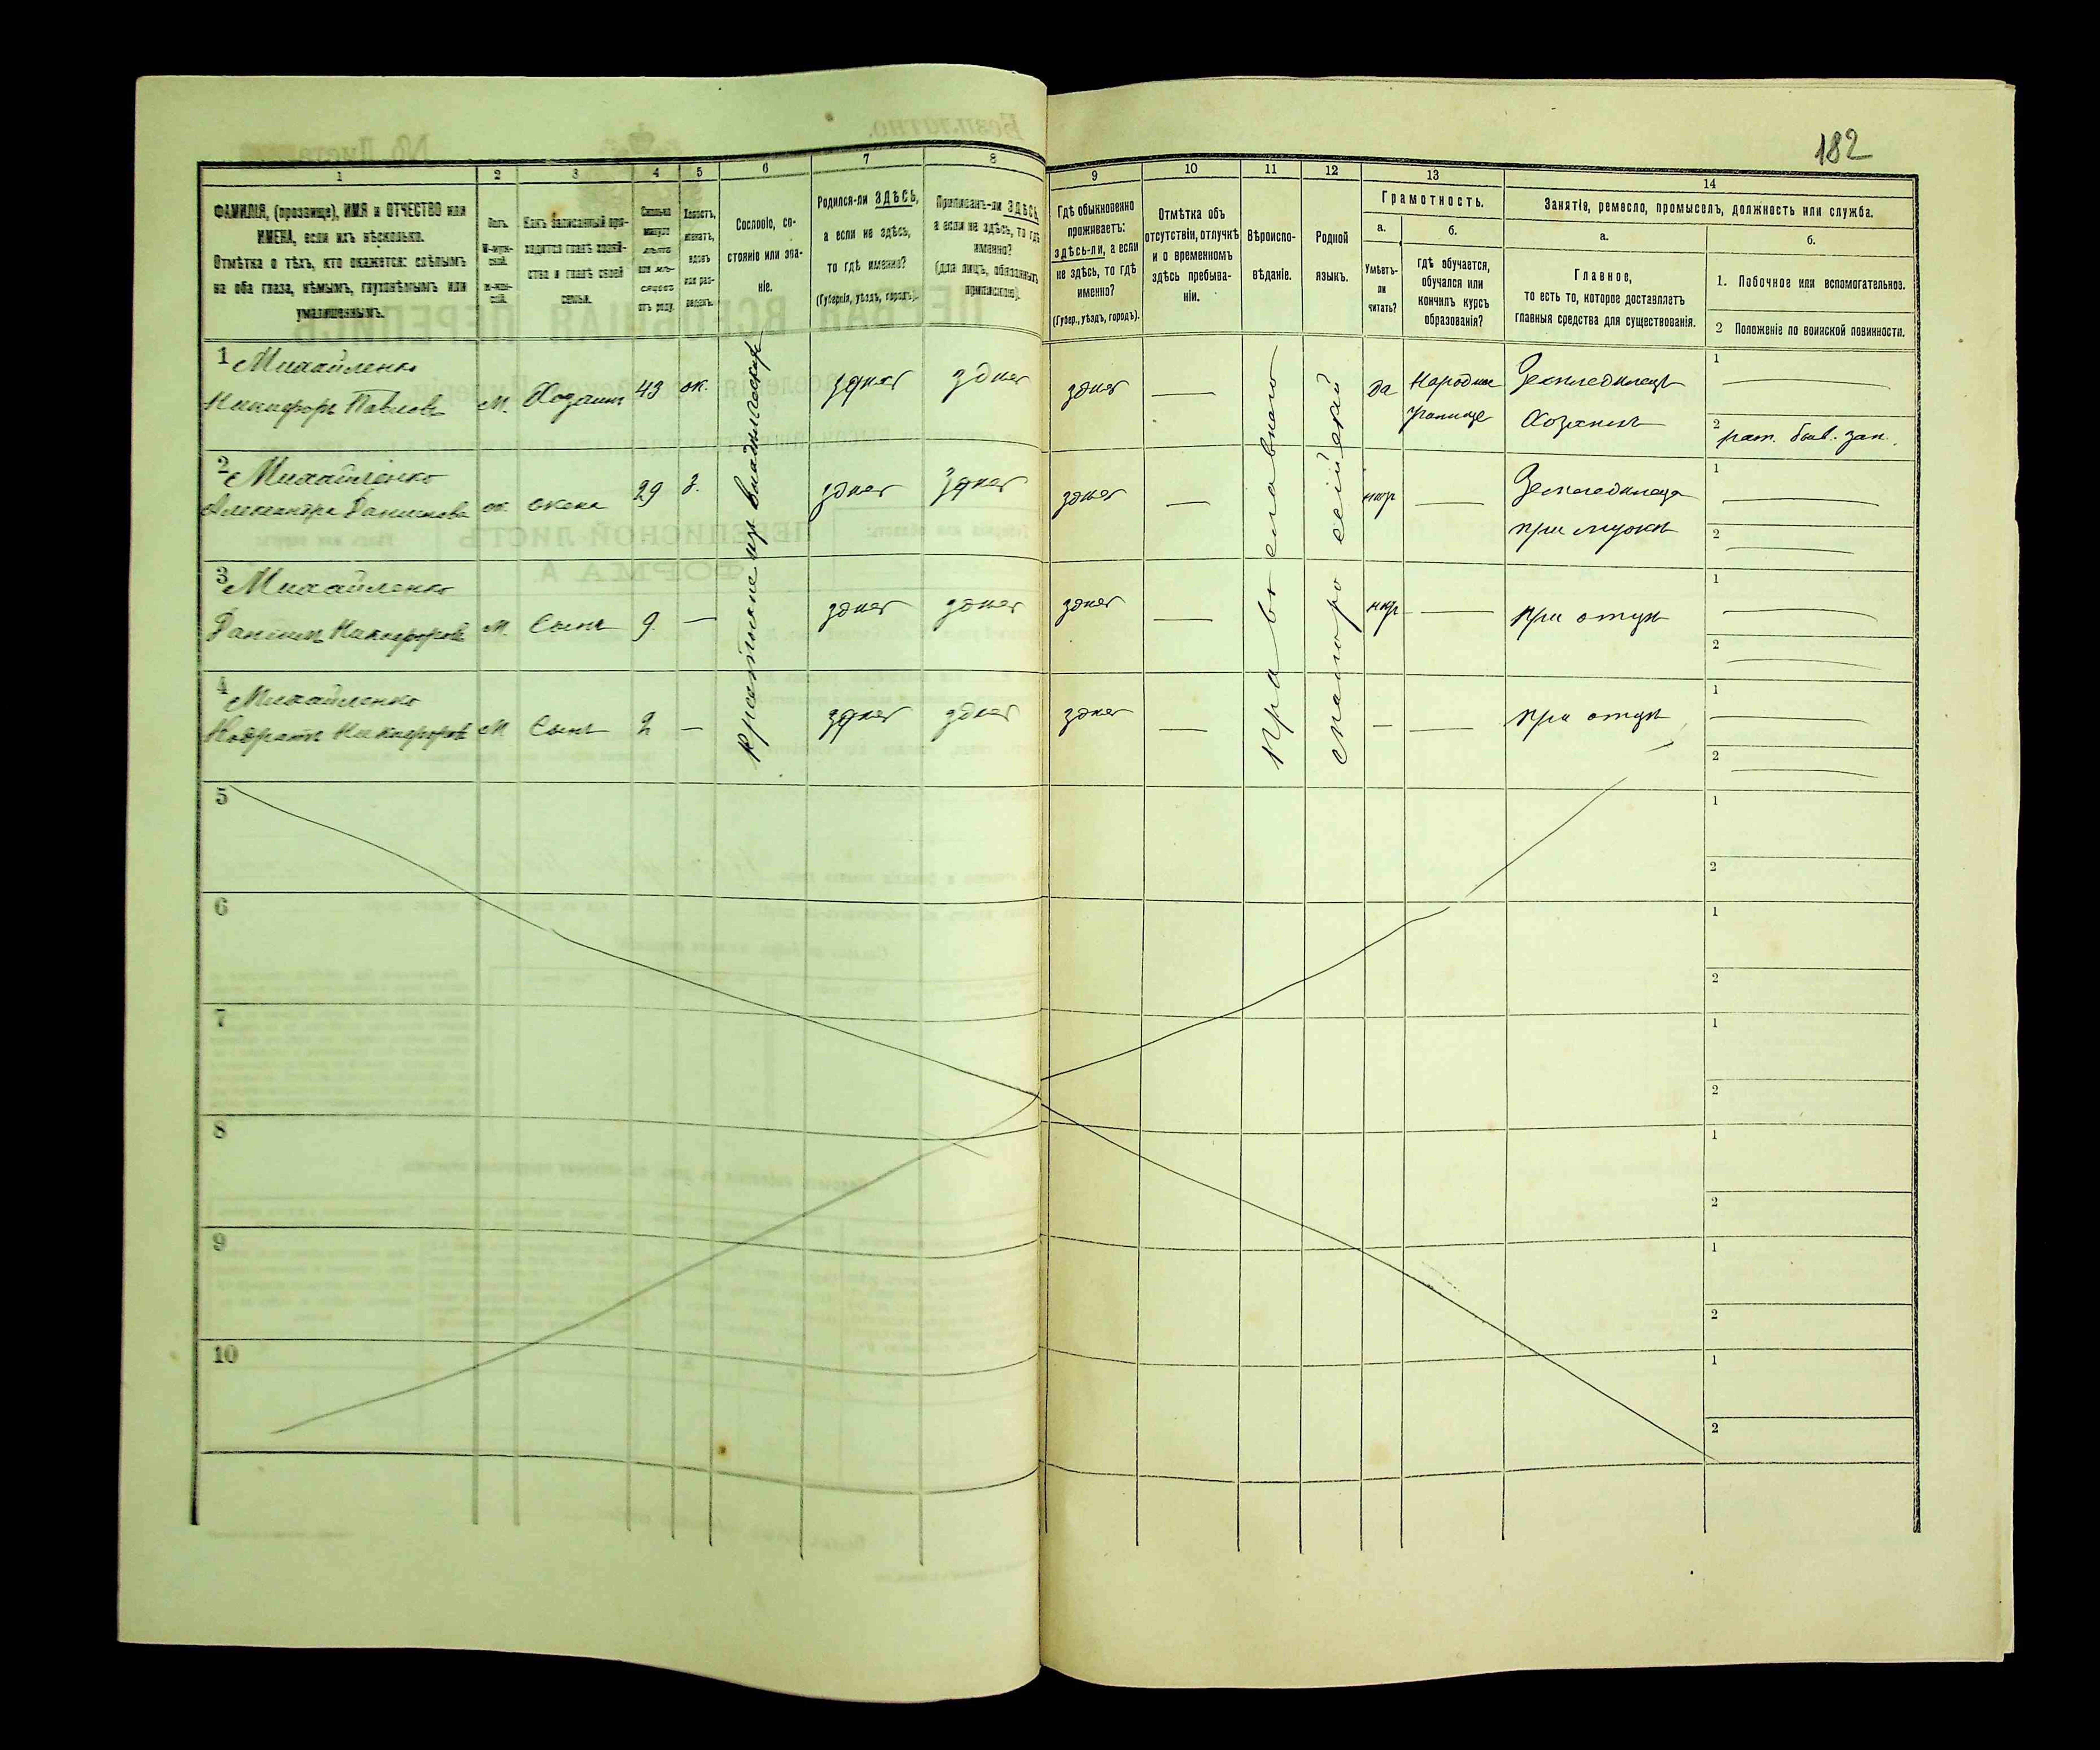 182
1
2
3
4
5
6
7
8
9
10
11
12
13
14
ФАМИЛІЯ, (прозвище), ИМЯ и ОТЧЕСТВО или
ИМЕНА, если ихъ нѣсколько.
Отмѣтка о тѣхъ, кто окажется: слѣпымъ
на оба глаза, нѣмымъ, глухонѣмымъ или
умалишеннымъ.
Полъ.
М-муж-
ской.
Ж-жен-
скій.
Какъ записанный при-
ходится главѣ хозяй-
ства и главѣ своей
семьи.
Сколько
минуло
лѣтъ
или мѣ-
сяцевъ
отъ роду.
Холостъ,
женатъ,
вдовъ
или раз-
веденъ.
Сословіе, со-
стояніе или зва-
ніе.
Родился-ли ЗДѢСЬ,
а если не здѣсь,
то гдѣ именно?
(Губернія, уѣздъ, городъ).
Приписанъ-ли ЗДѢСЬ,
а если не здѣсь, то гдѣ
именно?
(для лицъ, обязанныхъ
припискою).
Гдѣ обыкновенно
проживаетъ:
здѣсь-ли, а если
не здѣсь, то гдѣ
именно?
(Губер., уѣздъ, городъ).
Отмѣтка объ
отсутствіи, отлучкѣ
и о временномъ
здѣсь пребыва-
ніи.
Вѣроиспо-
вѣданіе.
Родной
языкъ.
Грамотность.
а.
б.
Умѣетъ-
ли
читать?
гдѣ обучается,
обучался или
кончилъ курсъ
образованія?
Занятіе, ремесло, промыселъ, должность или служба.
а.
б.
Главное,
то есть то, которое доставляетъ
главныя средства для существованія.
1. Побочное или вспомогательное.
2 Положеніе по воинской повинности.
1 Михайленко
Никифоръ Павловъ
М.
Хозяинъ
43
ж.
здѣсь
здѣсь
здѣсь
—
да
Народное
училище
Земледѣлецъ
Хозяинъ
1
2
рат.
2 Михайленко
Александра Данилова
ж.
жена
29
з.
здѣсь
здѣсь
здѣсь
—
нѣтъ
—
Земледѣлица
при мужѣ
1
2
3 Михайленко
Даніилъ Никифоровъ
М.
Сынъ
9
—
здѣсь
здѣсь
здѣсь
—
нѣтъ
—
при отцѣ
1
2
4 Михайленко
Кодратъ Никифоровъ
М
Сынъ
2
—
здѣсь
здѣсь
здѣсь
—
—
—
при отцѣ
1
2
Крестьяне изъ
Православного
Малоросійскій
5
1
2
6
1
2
7
1
2
8
1
2
9
1
2
10
1
2